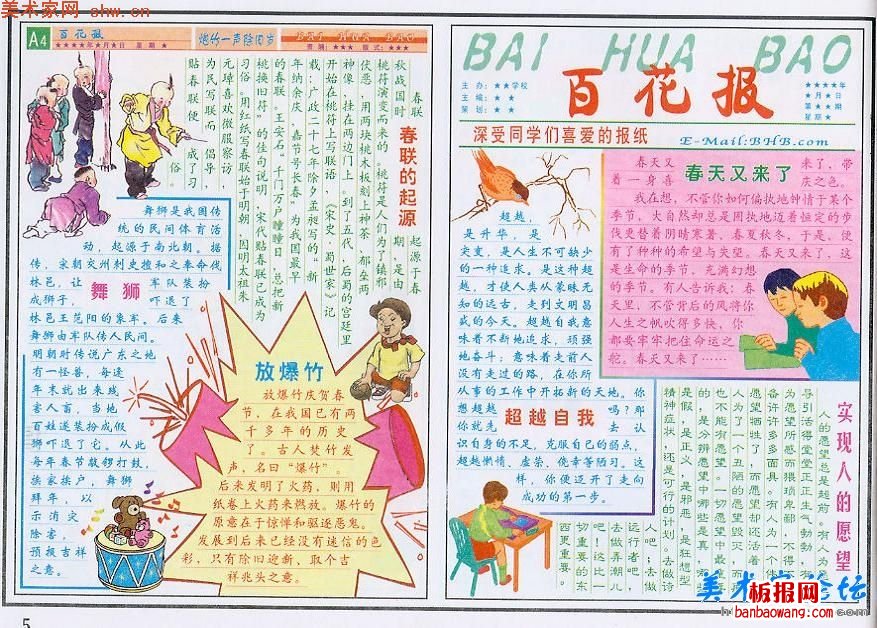 美术家网 shw.cn
A4
百花报
★★★★年★月★日 星期 ★
炮竹一声除旧岁
BAI HUA BAO
责编：★★★ 版式：★★★
春联的起源
春联
起源于春
秋战国时
期，是由
桃符演变而来的。桃符是人们为了镇邪
伏恶，用两块桃木板刻上神荼、郁垒两
神像，挂在两边门上。到了五代，后蜀的宫廷里
开始在桃符上写联语，《宋史·蜀世家》记
载：广政二十七年除夕孟昶写的“新
年纳余庆，嘉节号长春”为我国最早
的春联。王安石“千门万户瞳瞳日，总把新
桃换旧符”的佳句说明，宋代贴春联已成为
习俗。用红纸写春联始于明朝，因明太祖朱
元璋喜欢微服察访，
为民写联而
倡导，
贴春联便
成了习
俗。
舞狮
舞狮是我国传
统的民间体育活
动，起源于南北朝。据
传，宋朝交州刺史檀和之奉命伐
林邑，让 军队装扮
成狮子， 吓退了
林邑王范阳的象军。后来
舞狮由军队传人民间。
明朝时传说广东之地
有一怪兽，每逢
年末就出来残
害人畜，当地
百姓遂装扮成假
狮吓退了它。从此
每年春节敲锣打鼓，
挨家挨户，舞狮
拜年，以
示消灾
除害，
预报吉祥
之意。
放爆竹
放爆竹庆贺春
节，在我国已有两
千多年的历史
了。古人焚竹发
声，名曰“爆竹”。
后来发明了火药，则用
纸卷上火药来燃放。爆竹的
原意在于惊惮和驱逐恶鬼。
发展到后来已经没有迷信的色
彩，只有除旧迎新、取个吉
祥兆头之意。
5
BAI HUA BAO
百花报
主办：★★学校
主编：★ ★
策划：★ ★
★★★★年
★月★日
第★★期
星期★
深受同学们喜爱的报纸
E-Mail:BHB.com
春天又来了
春天又 来了，带
着一身喜 庆之色。
我在想，不管你如何偏执地钟情于某个
季节，大自然却总是固执地迈着恒定的步
伐更替着阴晴寒暑、春夏秋冬，于是，便
有了种种的希望与失望。春天又来了，这
是生命的季节，充满幻想
的季节。有人告诉我：春
天里，不管背后的风将你
人生之帆吹得多快，你
都要牢牢把住命运之
舵。春天又来了……
超越自我
超越，
是升华，是
突变，是人生不可缺少
的一种追求。是这种超
越，才使人类从蒙昧无
知的远古，走到文明昌
盛的今天。超越自我意
味着不断地追求，顽强
地奋斗；意味着走前人
没有走过的路，在你所
从事的工作中开拓新的天地。你
想超越 吗？那
你就先 去认
识自身的不足，克服自己的弱点，
超越懒惰、虚荣、侥幸等陋习。这
样，你便迈开了走向
成功的第一步。
实现人的愿望
人的愿望总是超前，有人为
导引活得堂堂正正生气勃勃，有人
为愿望所惑而猥琐卑鄙，不得不
备许许多多面具。有人为一个佳
愿望牺牲了，而愿望却还活着
人为了一个丑陋的愿望毁灭，而
也不能有愿望。一切愿望中最重
的，是分辨愿望中哪些是真，哪
是假，是正义，是邪恶，是狂想型
精神症状，还是可行的计划。去做诗
人吧！去做
远行者吧，
去做弄潮儿
吧！这比一
切重要的东
西更重要。
美术家论坛
板报网
banbaowang.com